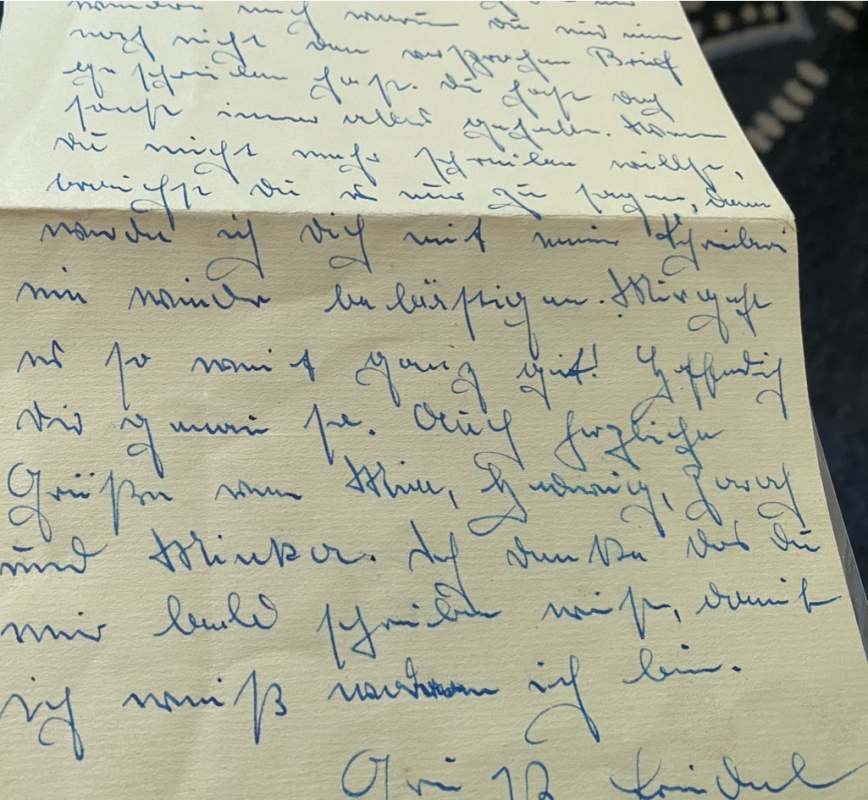 mich warum du mir
noch nicht den versprochen Brief
geschrieben hast. Du hast doch
sonst immer alles gehalten. Wenn
du nicht mehr schreiben willst,
brauchst du es nur zu sagen, dann
werde ich dich mit meine
nie wieder belästigen. Mir geht
es so weit ganz gut! Hoffendlich
dir genau so. Auch herzliche
Grüße von Hedwig,
und Minka. Ich denke das du
mir bald schreiben wirst, damit
ich weiß woran ich bin.
Gruß